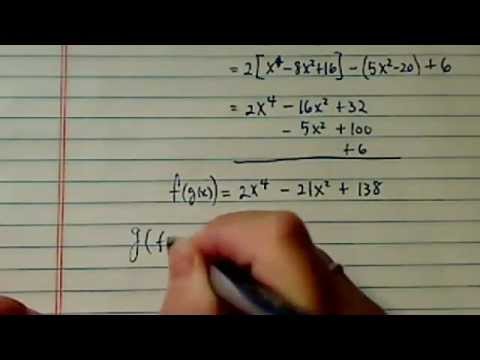 = 2[x⁴ - 8x² + 16] - (5x² - 20) + 6
= 2x⁴ - 16x² + 32
- 5x² + 100
+ 6
f(g(x)) = 2x⁴ - 21x² + 138
g(f